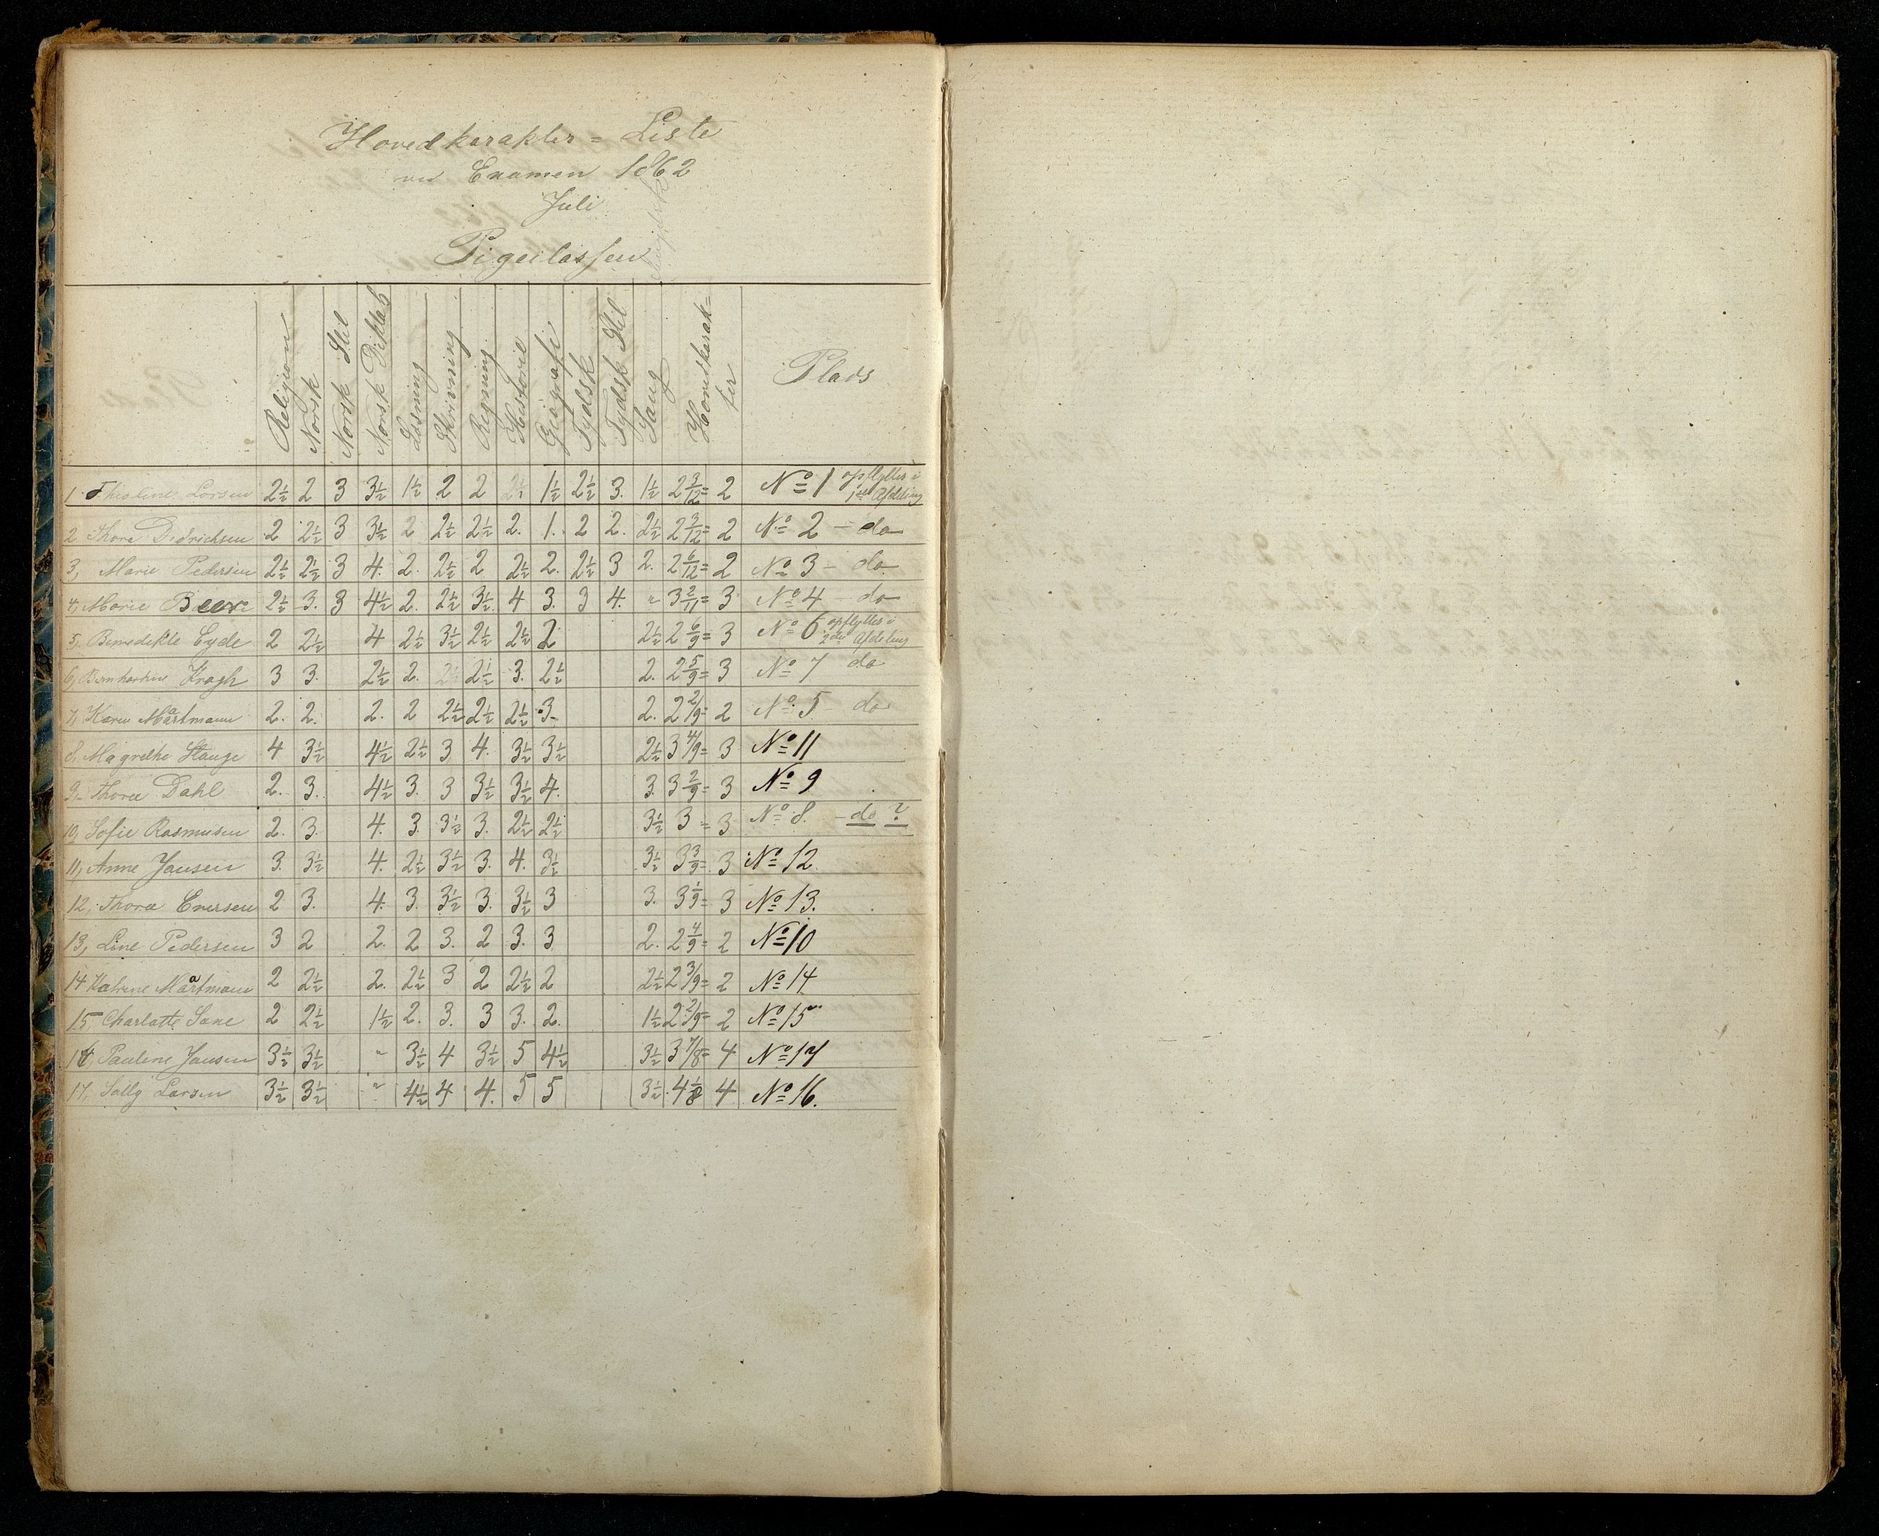 Hovedkarakter = Liste
ved Examen 1862
Juli
Pigeclassen
Religion Norsk Norsk Stil Norsk Diktat Læsning Skrivning Regning Historie Geografi Tydsk Tydsk Stil Sang Hovedkarak= ter Plads
1. Thialine Larsen 2½ 2 3 3½ 1½ 2 2 2½ 1½ 2½ 3. 1½ 2 3/12= 2 No 1 opflyttes i 1ste Afdeling
2 Thora Didrichsen 2 2½ 3 3½ 2 2½ 2½ 2. 1. 2 2. 2½ 2 3/12= 2 No 2 - do
3, Marie Pedersen 2½ 2½ 3 4. 2. 2½ 2 2½ 2. 2½ 3 2. 2 6/12= 2 No 3 - do
4, Marie Beer 2½ 3. 3 4½ 2. 2½ 3½ 4 3. 3 4. " 3 2/11= 3 No 4 do
5, Benedikte Eyde 2 2½ 4 2½ 3½ 2½ 2½ 2 2½ 2 6/9= 3 No 6 opflyttes i 2den Afdeling
6, Bernhardine Kragh 3 3. 2½ 2. 2½ 2½ 3. 2½ 2. 2 5/9= 3 No 7 do
7, Karen Martmann 2. 2. 2. 2 2½ 2½ 2½ 3 2. 2 2/9= 2 No 5 do
8, Magrethe Stange 4 3½ 4½ 2½ 3 4. 3½ 3½ 2½ 3 4/9= 3 No 11
9, Thora Dahl 2. 3. 4½ 3. 3 3½ 3½ 4. 3. 3 2/9= 3 No 9
10, Sofie Rasmusen 2. 3. 4. 3. 3½ 3. 2½ 2½ 3½ 3 = 3 No 8. - do ?
11, Anne Jansen 3. 3½ 4. 2½ 3½ 3. 4. 3½ 3½ 3 3/9= 3 No 12.
12, Thora Eversen 2 3. 4. 3. 3½ 3. 3½ 3 3. 3 1/9= 3 No 13.
13, Line Pedersen 3 2 2. 2 3. 2 3. 3 2. 2 4/9= 2 No 10
14 Katrine Martmann 2 2½ 2. 2½ 3 2 2½ 2 2½ 2 3/9= 2 No 14
15 Charlotte Sane 2 2½ 1½ 2. 3. 3 3. 2. 1½ 2 2/9= 2 No 15
16, Pauline Jansen 3½ 3½ " 3½ 4 3½ 5 4½ 3½ 3 7/8= 4 No 17
17, Sally Larsen 3½ 3½ " 4½ 4 4. 5 5 3½ 4 1/8 4 No 16.